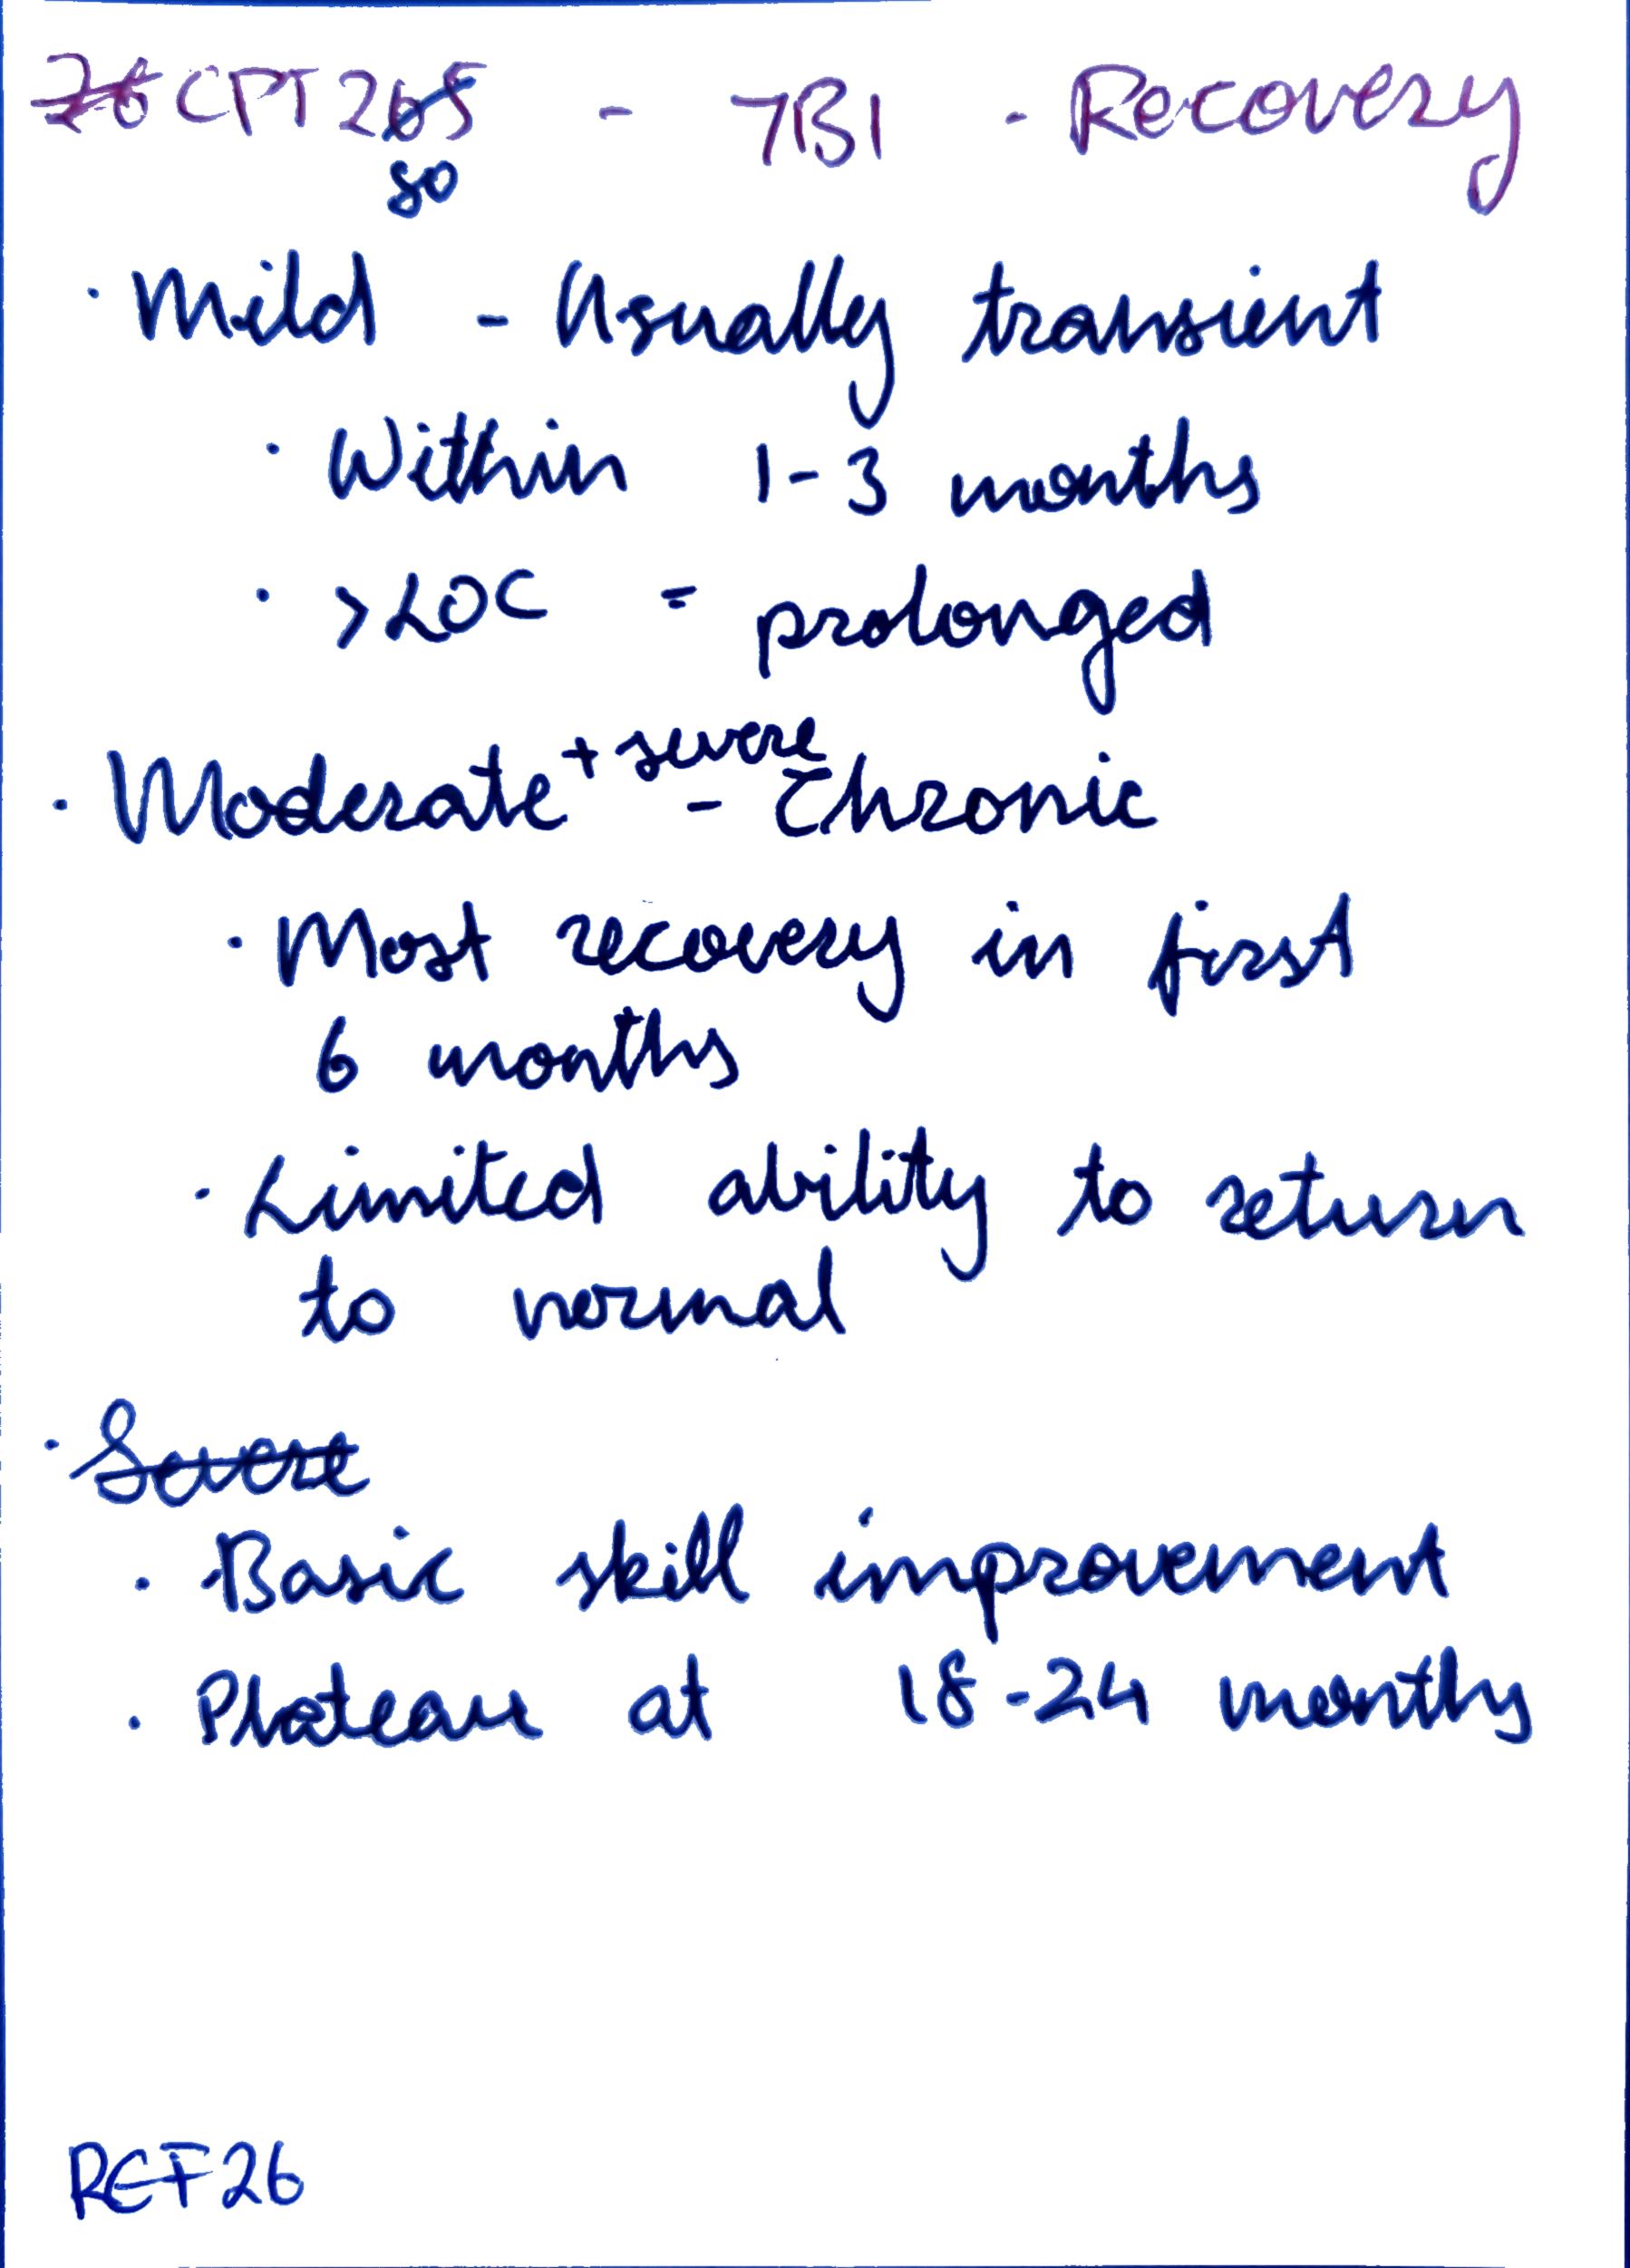 26 CPT265 - TBI - Recovery
80
· Mild - Usually transient
· Within 1-3 months
· >LOC = prolonged
· Moderate + severe - Chronic
· Most recovery in first
6 months
· Limited ability to return
to normal
· Severe
· Basic skill improvement
· Plateau at 18-24 months
REF26